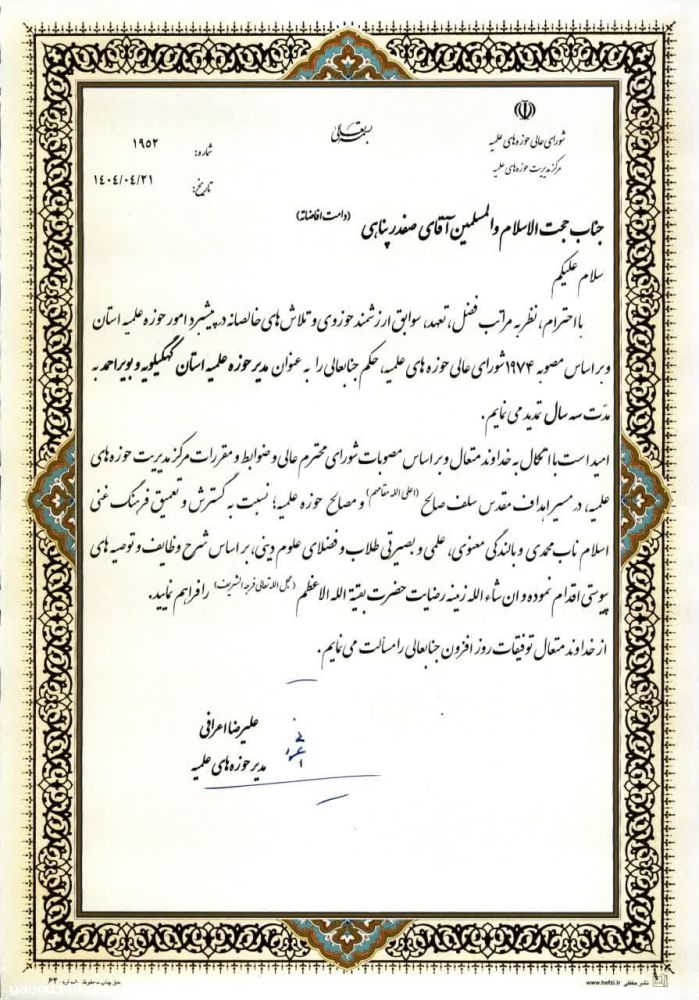 بسمه تعالی
شورای عالی حوزه های علمیه
مرکز مدیریت حوزه های علمیه
شماره: ۱۹۵۲
تاریخ: ۱۴۰۴/۰۴/۲۱
جناب حجت الاسلام والمسلمین آقای صفدر پناهی (دامت افاضاته)
سلام علیکم
با احترام، نظر به مراتب فضل، تعهد، سوابق ارزشمند حوزوی و تلاش های خالصانه در پیشبرد امور حوزه علمیه استان
و بر اساس مصوبه ۱۹۷۴ شورای عالی حوزه های علمیه، حکم جنابعالی را به عنوان مدیر حوزه علمیه استان کهگیلویه و بویراحمد به
مدّت سه سال تمدید می نمایم.
امید است با اتکال به خداوند متعال و بر اساس مصوبات شورای محترم عالی و ضوابط و مقررات مرکز مدیریت حوزه های
علمیه، در مسیر اهداف مقدس سلف صالح (اعلی الله مقامهم) و مصالح حوزه علمیه؛ نسبت به گسترش و تعمیق فرهنگ غنی
اسلام ناب محمدی و بالندگی معنوی، علمی و بصیرتی طلاب و فضلای علوم دینی، بر اساس شرح وظایف و توصیه های
پیوستی اقدام نموده و ان شاء الله زمینه رضایت حضرت بقیة الله الاعظم (عجل الله تعالی فرجه الشریف) را فراهم نمایید.
از خداوند متعال توفیقات روز افزون جنابعالی را مسألت می نمایم.
علیرضا اعرافی
مدیر حوزه های علمیه
نشر حفظی www.hefzi.ir
حق چاپ محفوظ شماره